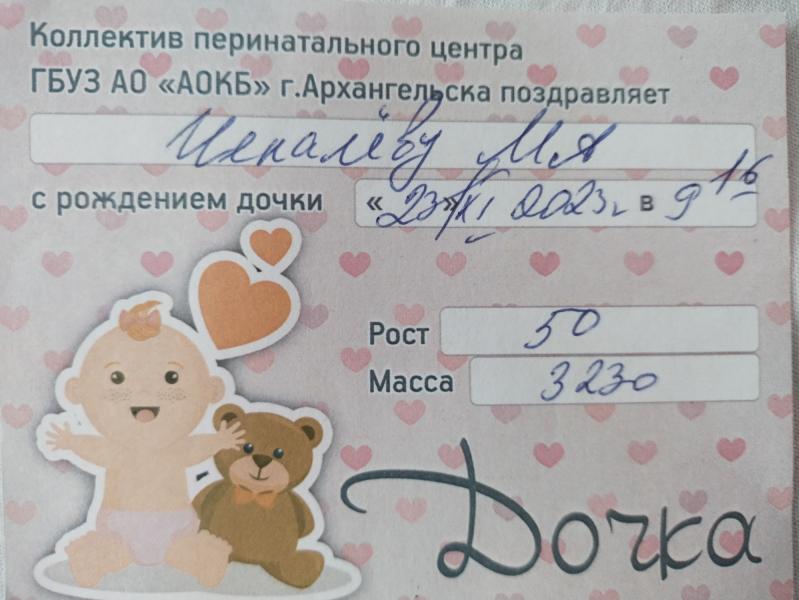 Коллектив перинатального центра
ГБУЗ АО «АОКБ» г.Архангельска поздравляет
М А
с рождением дочки «23» XI 2023г в 9 16
Рост 50
Масса 3230
Дочка